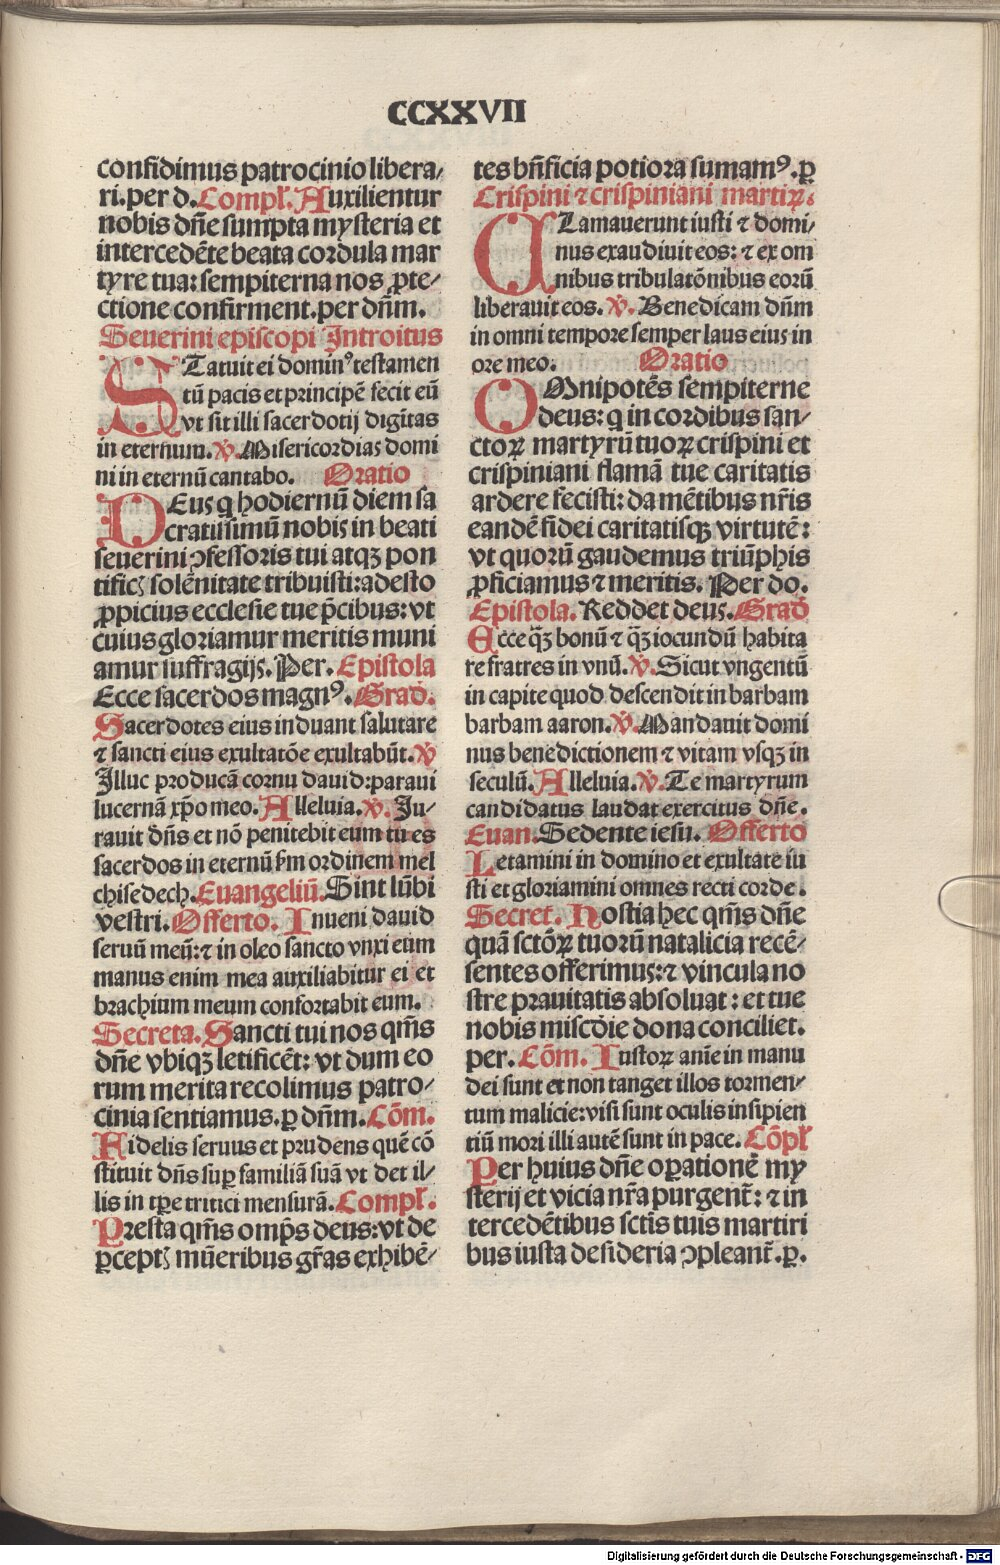 CCXXVII
confidimus patrocinio libera/
ri. per d. Compl̕. Auxilientur
nobis dn̄e sumpta mysteria et
intercedēte beata cordula mar
tyre tua: sempiterna nos ꝓte/
ctione confirment. per dn̄m.
Seuerini episcopi Introitus
STatuit ei dominꝰ testamen
tū pacis et principē fecit eū
vt sit illi sacerdotij dignitas
in eternum. ꝟ. Misericordias domi
ni in eternū cantabo. Oratio
DEus q hodiernū diem sa
cratissimū nobis in beati
seuerini ↄfessoris tui atqꝫ pon
tificꝭ solēnitate tribuisti: adesto
ꝓpicius ecclesie tue p̄cibus: vt
cuius gloriamur meritis muni
amur suffragijs. Per. Epistola
Ecce sacerdos magnꝰ. Grad̄.
Sacerdotes eius induant salutare
⁊ sancti eius exultatōe exultabūt. ꝟ
Illuc producā cornu dauid: paraui
lucernā xp̄o meo. Alleluia. ꝟ. Ju/
rauit dn̄s et nō penitebit eum tu es
sacerdos in eternū ẜm ordinem mel
chisedech. Euangeliū. Sint lūbi
vestri. Offerto. Inueni dauid
seruū meū: ⁊ in oleo sancto vnxi eum
manus enim mea auxiliabitur ei et
brachium meum confortabit eum.
Secreta. Sancti tui nos qm̄s
dn̄e vbiqꝫ letificēt: vt dum eo
rum merita recolimus patro/
cinia sentiamus. ꝑ dn̄m. Cōm.
Fidelis seruus et prudens quē cō
stituit dn̄s suꝑ familiā suā vt det il/
lis in tꝑe tritici mensurā. Compl̕.
Presta qm̄s omp̄s deus: vt de
ꝑceptꝭ mūeribus gr̄as exhibē/
tes bn̄ficia potiora sumamꝰ. ꝑ
Crispini ⁊ crispiniani martiꝝ.
CLamauerunt iusti ⁊ domi/
nus exaudiuit eos: ⁊ ex om
nibus tribulatōnibus eorū
liberauit eos. ꝟ. Benedicam dn̄m
in omni tempore semper laus eius in
ore meo. Oratio
OMnipotēs sempiterne
deus: q in cordibus san/
ctoꝝ martyrū tuoꝝ crispini et
crispiniani flamā tue caritatis
ardere fecisti: da mētibus nr̄is
eandē fidei caritatisqꝫ virtutē:
vt quorū gaudemus triūphis
ꝓficiamus ⁊ meritis. Per do.
Epistola. Reddet deus. Grad̄
Ecce qꝫ̄ bonū ⁊ qꝫ̄ iocundū habita
re fratres in vnū. ꝟ. Sicut vngentū
in capite quod descendit in barbam
barbam aaron. ꝟ. Mandauit domi
nus benedictionem ⁊ vitam vsqꝫ in
seculū. Alleluia. ꝟ. Te martyrum
candidatus laudat exercitus dn̄e.
Euan. Sedente iesu. Offerto
Letamini in domino et exultate iu
sti et gloriamini omnes recti corde.
Secret. Hostia hec qm̄s dn̄e
quā sctōꝝ tuorū natalicia recē/
sentes offerimus: ⁊ vincula no
stre prauitatis absoluat: et tue
nobis misc̄die dona conciliet.
per. Cōm. Iustoꝝ anīe in manu
dei sunt et non tanget illos tormen/
tum malicie: visi sunt oculis insipien
tiū mori illi autē sunt in pace. Cōpl̕
Per huius dn̄e oꝑationē my
sterij et vicia nr̄a purgent̄: ⁊ in
tercedētibus sctīs tuis martiri
bus iusta desideria ↄpleant̄. ꝑ.
Digitalisierung gefördert durch die Deutsche Forschungsgemeinschaft - DFG